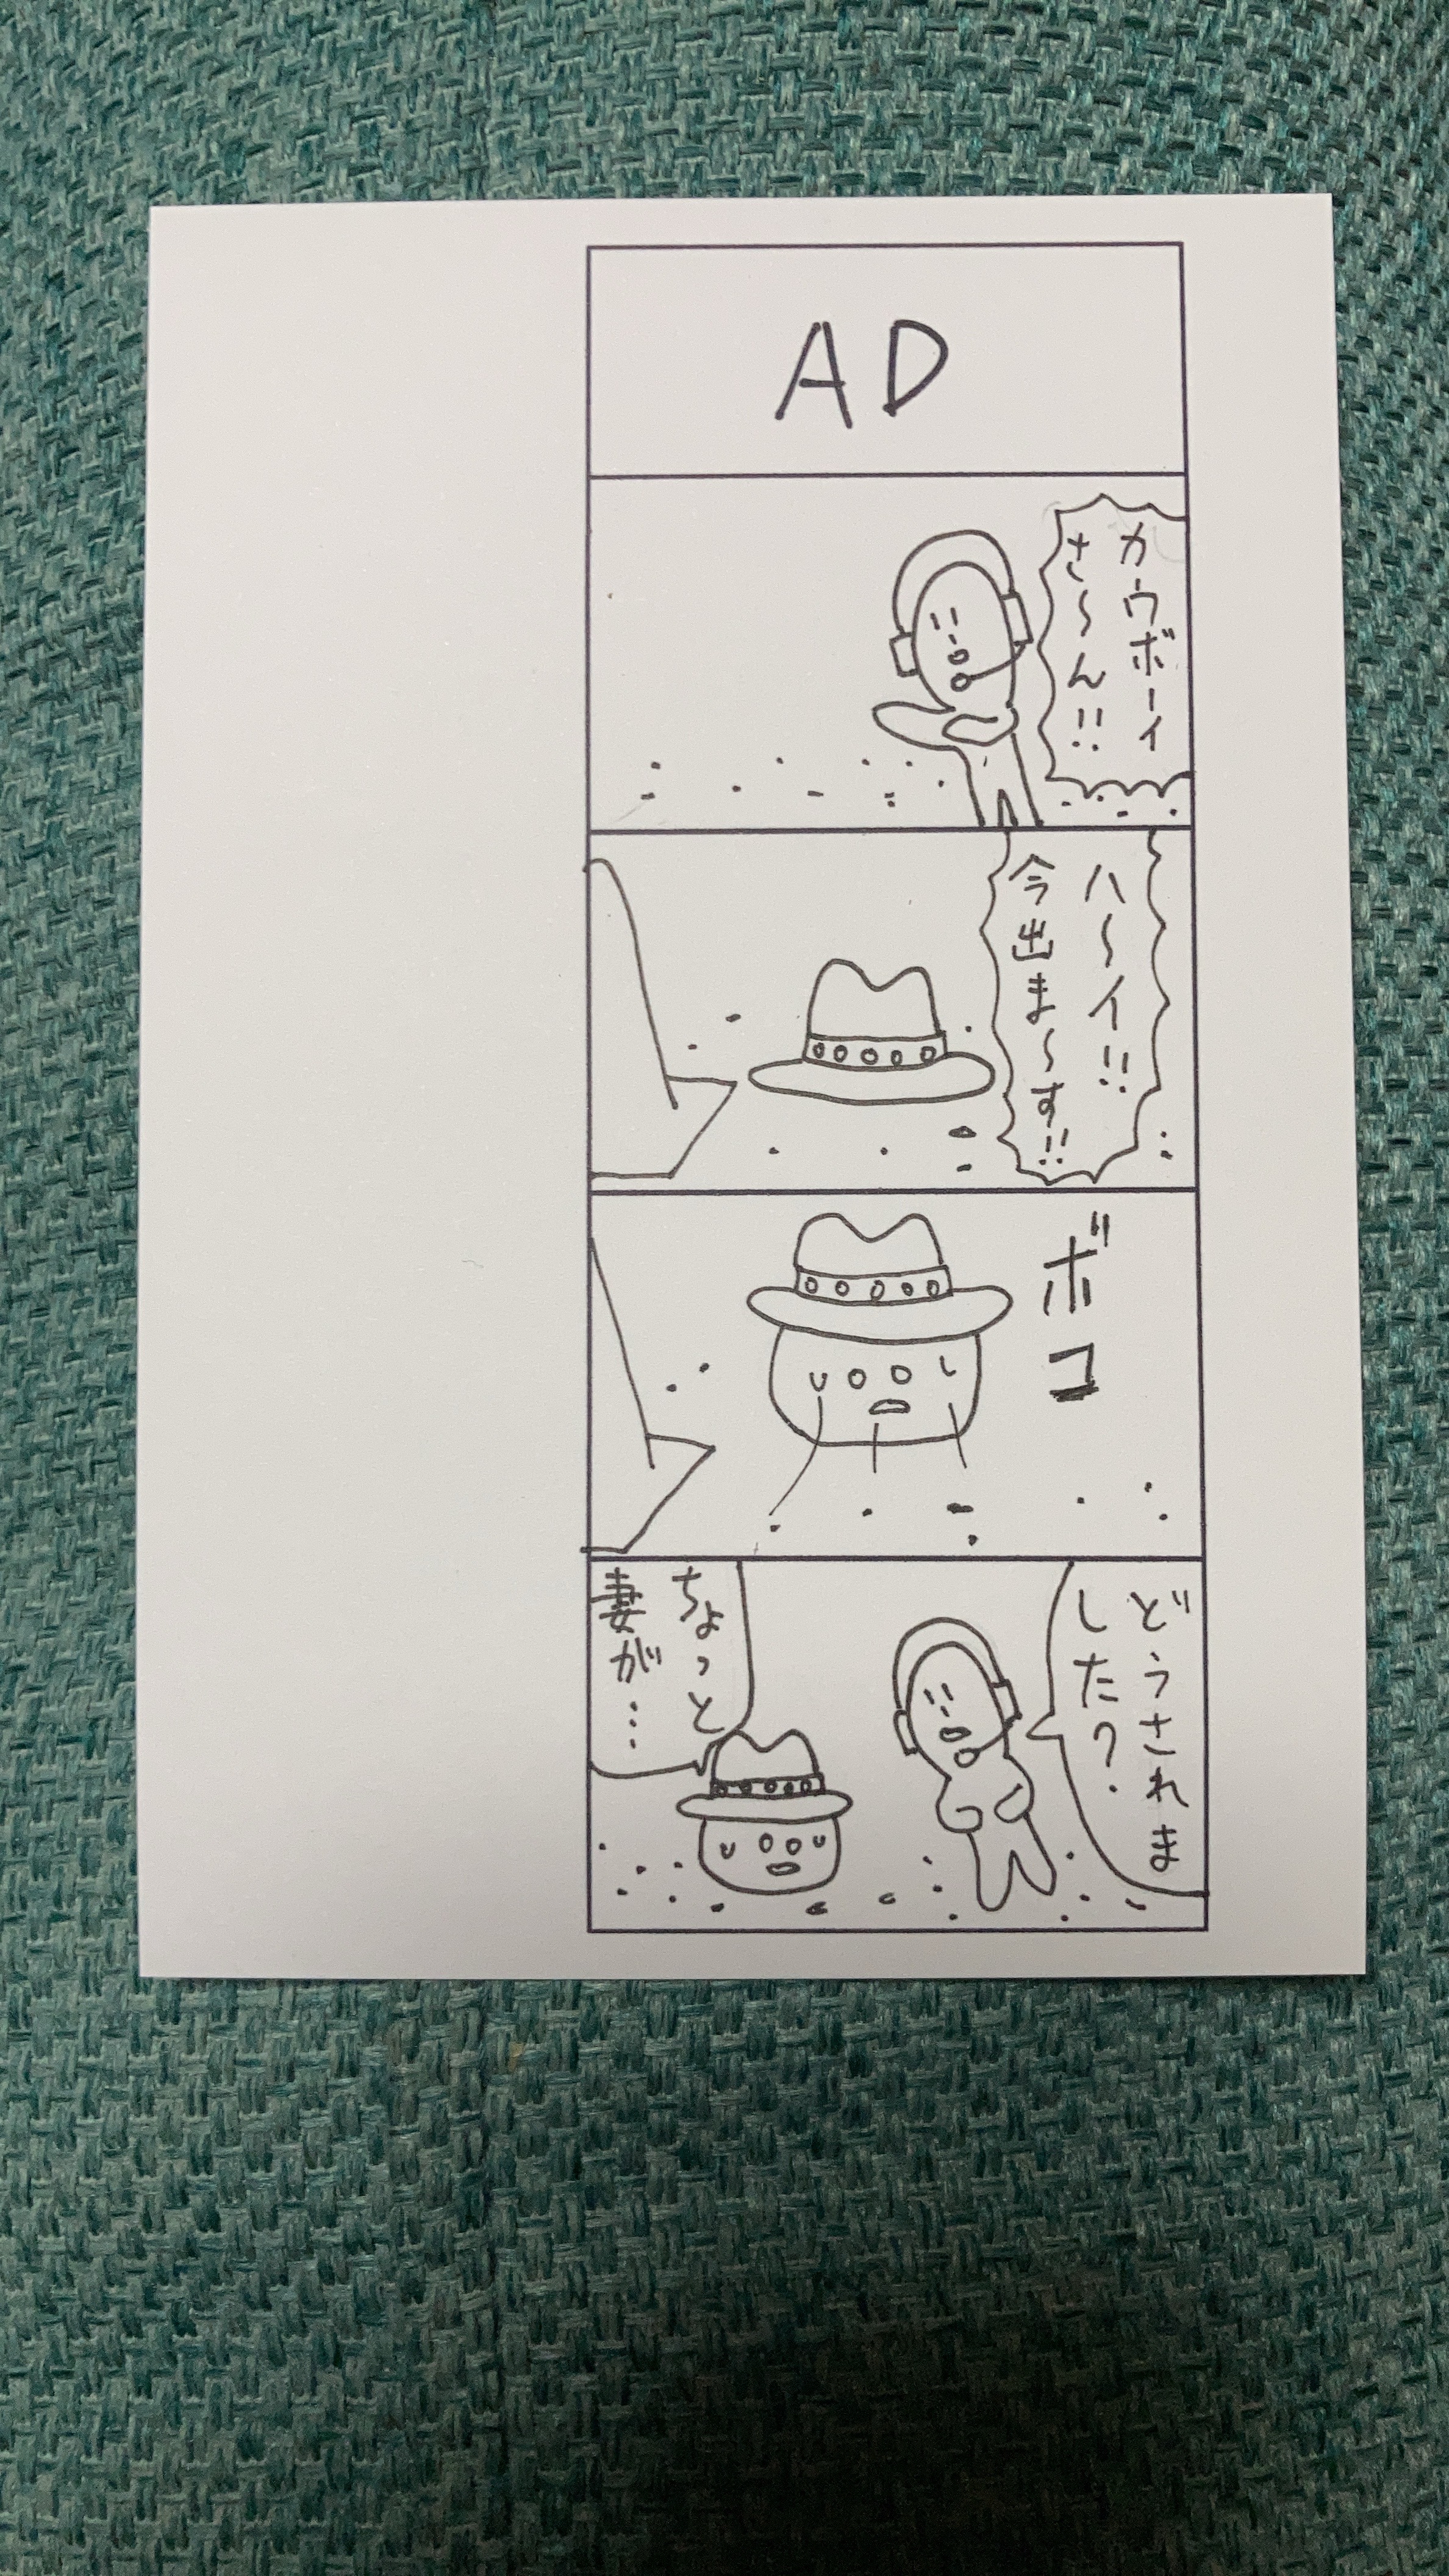 AD
カウボーイ
さ〜ん!!
ハ〜イ!!
今出ま〜す!!
ボコ
どうされま
した?
ちょっと
妻が…